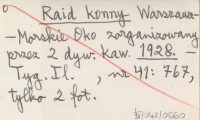 Raid konny Warszawa-
-Morskie Oko zorganizowany
przez 2 dyw. kaw. - 1928. -
Tyg. Il. , nr 41: 767,
tylko 2 fot.